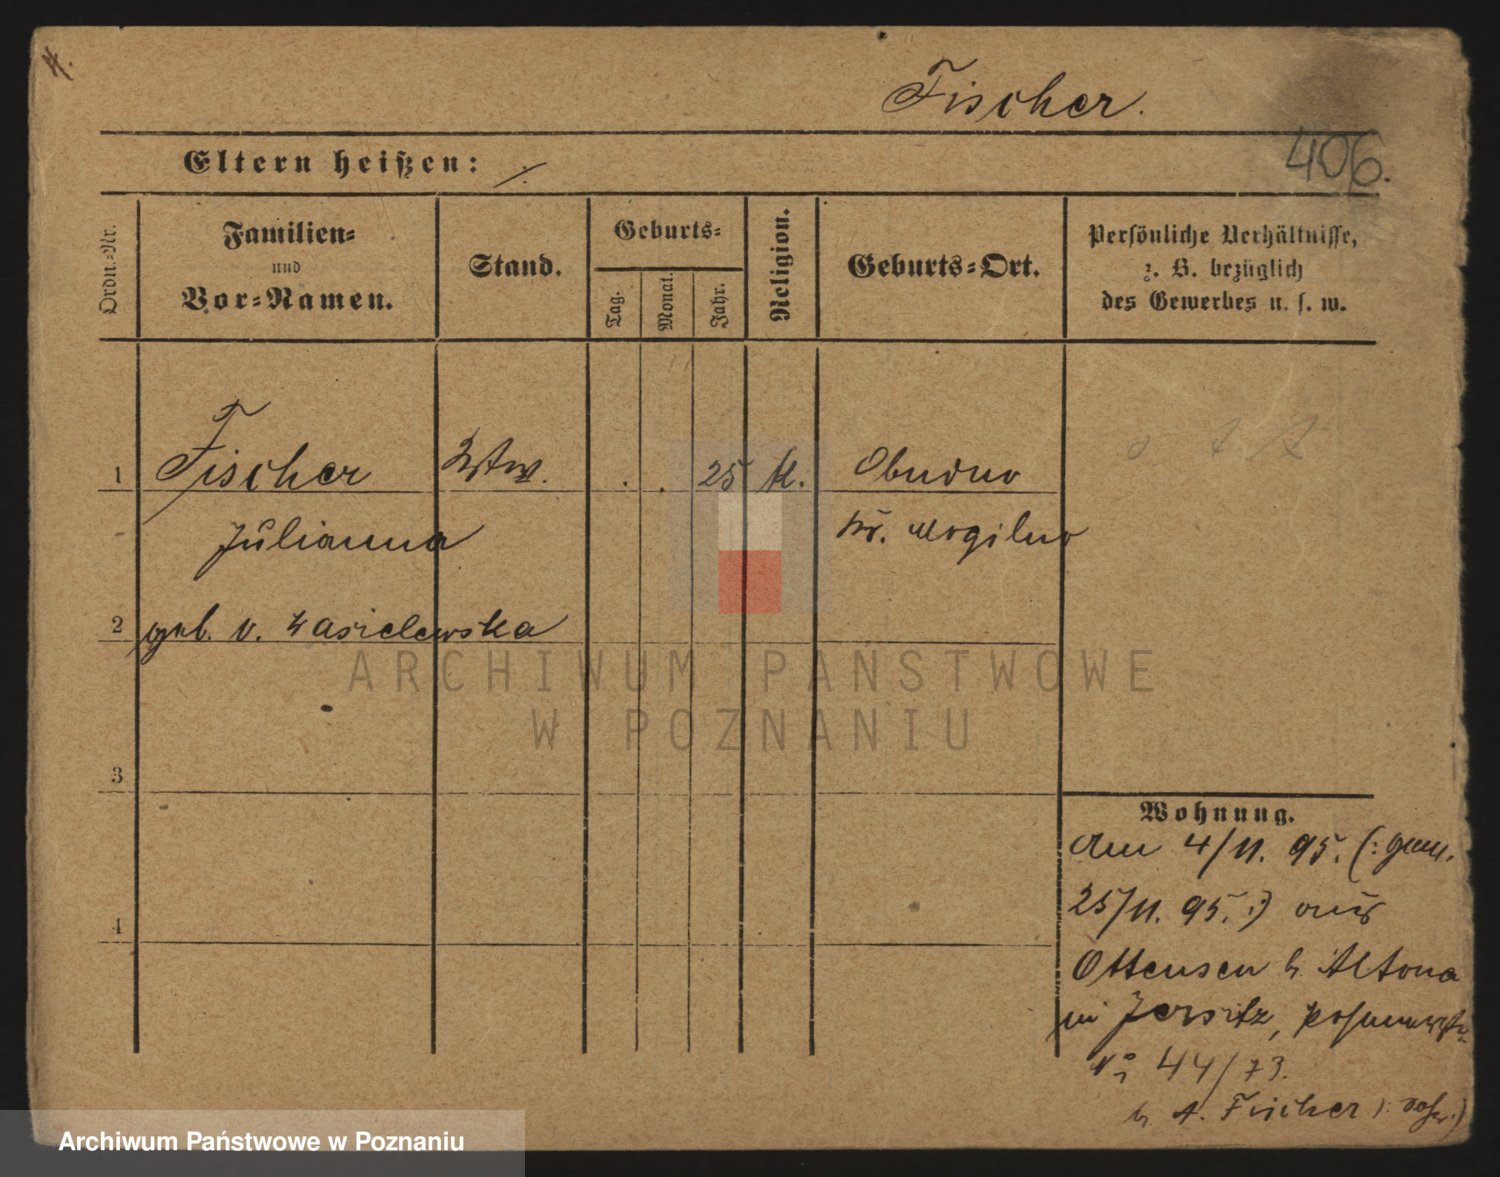 Fischer.
406.
Eltern heißen:
Ordn.-Nr.
Familien-
und
Vor-Namen.
Stand.
Geburts-
Tag.
Monat.
Jahr.
Religion.
Geburts-Ort.
Persönliche Verhältnisse,
z. B. bezüglich
des Gewerbes u. s. w.
1 Fischer Wtw. . . 25 K.
Julianna Kr. Mogilno
2 geb. v.
3
4
ARCHIWUM PAŃSTWOWE
W POZNANIU
Wohnung.
Am 4/11. 95. (: gem.
25/11. 95. :) aus
Ottensen b Altona
in Jersitz, Posenerstr.
No 44/73.
b A. Fischer
Archiwum Państwowe w Poznaniu